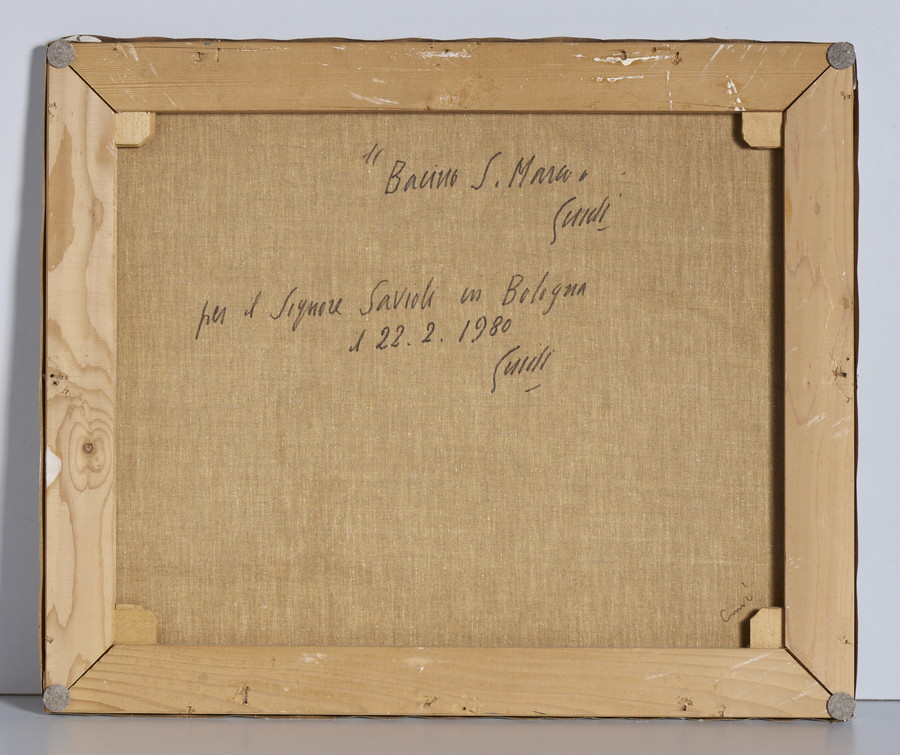 "Bacino S. Marco
Guidi
per il Signore Savioli in Bologna
il 22. 2. 1980
Guidi